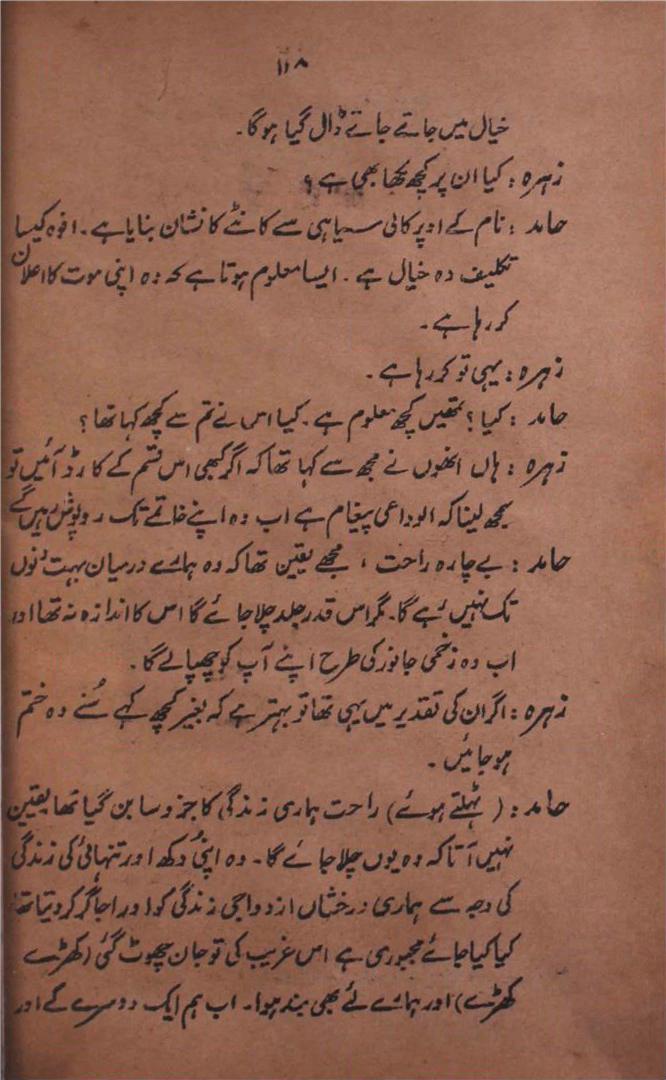 ۱۱۸
خیال میں جاتے جاتے ڈال گیا ہوگا۔
زہرہ : کیا ان پر کچھ لکھا بھی ہے ؟
حامد : نام کے اوپر کالی سیاہی سے کانٹے کا نشان بنایا ہے۔ افوہ کیسا
تکلیف دہ خیال ہے ۔ ایسا معلوم ہوتا ہے کہ وہ اپنی موت کا اعلان
کر رہا ہے ۔
زہرہ : یہی تو کر رہا ہے ۔
حامد : کیا ؟ تمھیں کچھ معلوم ہے ۔ کیا اس نے تم سے کچھ کہا تھا ؟
زہرہ : ہاں انھوں نے مجھ سے کہا تھا کہ اگر کبھی اس قسم کے کارڈ آئیں تو
سمجھ لینا کہ الوداعی پیغام ہے اب وہ اپنے خاتمے تک روپوش رہیں گے
حامد : بے چارہ راحت ، مجھے یقین تھا کہ وہ ہمارے درمیان بہت دنوں
تک نہیں رہے گا۔ مگر اس قدر جلد چلا جائے گا اس کا اندازہ نہ تھا اور
اب وہ زخمی جانور کی طرح اپنے آپ کو چھپالے گا۔
زہرہ : اگر ان کی تقدیر میں یہی تھا تو بہتر ہے کہ بغیر کچھ کہے سُنے وہ ختم
ہو جائیں ۔
حامد : ( ٹہلتے ہوئے ) راحت ہماری زندگی کا جزو سا بن گیا تھا یقین
نہیں آتا کہ وہ یوں چلا جائے گا۔ وہ اپنی دکھ اور تنہائی کی زندگی
کی وجہ سے ہماری درخشاں ازدواجی زندگی کو اور اجاگر کر دیتا تھا
کیا کیا جائے مجبوری ہے اس غریب کی تو جان چھوٹ گئی (کھڑے
کھڑے) اور ہمارے لئے بھی ہوا۔ اب ہم ایک دوسرے کے اور